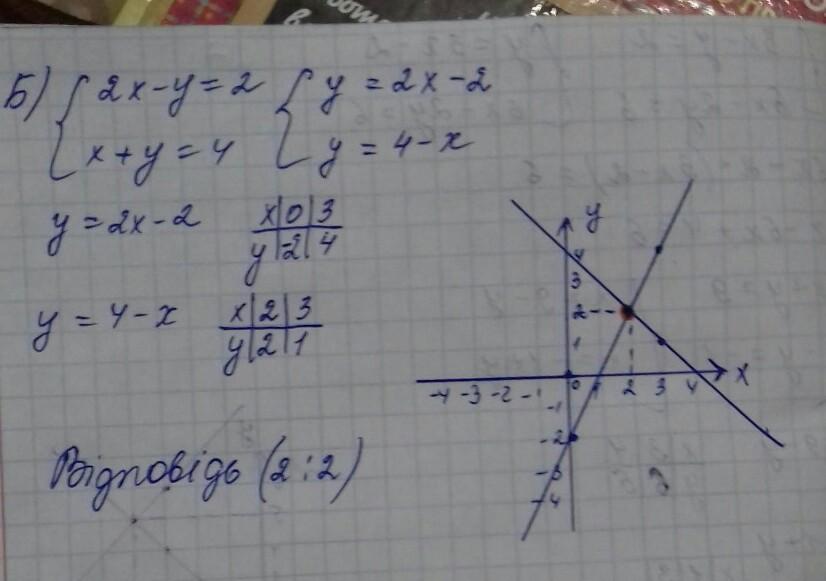 Б) { 2x-y=2 { y=2x-2
x+y=4 y=4-x
y=2x-2 x|0|3
y|-2|4
y=4-x x|2|3
y|2|1
y
4
3
2
1
-4 -3 -2 -1 0 1 2 3 4 x
-1
-2
-3
-4
Відповідь (2;2)